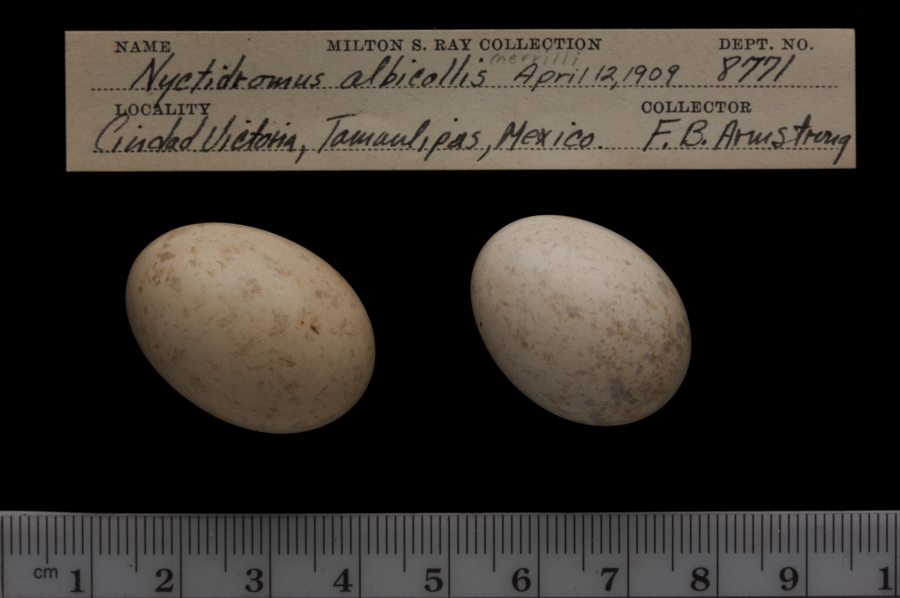 NAME MILTON S. RAY COLLECTION DEPT. NO.
merrilli
Nyctidromus albicollis April 12, 1909 8771
LOCALITY COLLECTOR
Ciudad Victoria, Tamaulipas, Mexico. F. B. Armstrong
cm 1 2 3 4 5 6 7 8 9 1